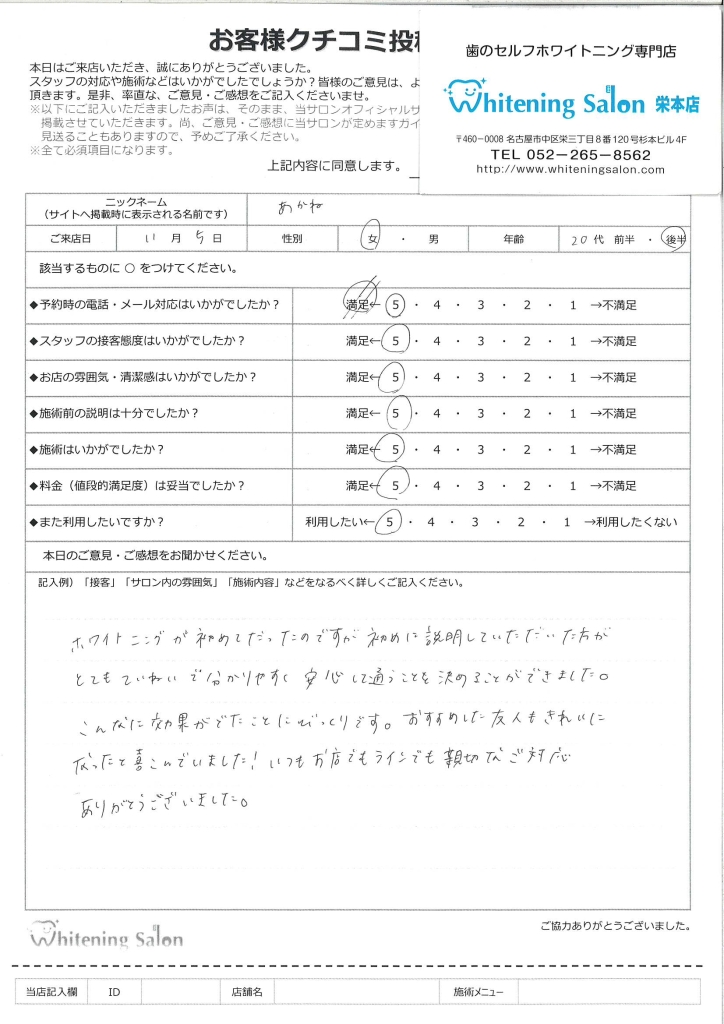 お客様クチコミ投稿
本日はご来店いただき、誠にありがとうございました。
スタッフの対応や施術などはいかがでしたでしょうか?皆様のご意見は、よ
頂きます。是非、率直な、ご意見・ご感想をご記入くださいませ。
※以下にご記入いただきましたお声は、そのまま、当サロンオフィシャルサ
掲載させていただきます。尚、ご意見・ご感想に当サロンが定めますガイ
見送ることもありますので、予めご了承ください。
※全て必須項目になります。
上記内容に同意します。
歯のセルフホワイトニング専門店
Whitening Salon 栄本店
〒460-0008 名古屋市中区栄三丁目8番120号杉本ビル4F
TEL 052-265-8562
http://www.whiteningsalon.com
ニックネーム
(サイトへ掲載時に表示される名前です)
あかね
ご来店日 11 月 5 日 性別 女 ・ 男 年齢 20 代 前半 ・ 後半
該当するものに ○ をつけてください。
◆予約時の電話・メール対応はいかがでしたか? 満足← 5 ・ 4 ・ 3 ・ 2 ・ 1 →不満足
◆スタッフの接客態度はいかがでしたか? 満足← 5 ・ 4 ・ 3 ・ 2 ・ 1 →不満足
◆お店の雰囲気・清潔感はいかがでしたか? 満足← 5 ・ 4 ・ 3 ・ 2 ・ 1 →不満足
◆施術前の説明は十分でしたか? 満足← 5 ・ 4 ・ 3 ・ 2 ・ 1 →不満足
◆施術はいかがでしたか? 満足← 5 ・ 4 ・ 3 ・ 2 ・ 1 →不満足
◆料金(値段的満足度)は妥当でしたか? 満足← 5 ・ 4 ・ 3 ・ 2 ・ 1 →不満足
◆また利用したいですか? 利用したい← 5 ・ 4 ・ 3 ・ 2 ・ 1 →利用したくない
本日のご意見・ご感想をお聞かせください。
記入例)「接客」「サロン内の雰囲気」「施術内容」などをなるべく詳しくご記入ください。
ホワイトニングが初めてだったのですが初めに説明していただいた方が
とてもていねいで分かりやすく安心して通うことを決めることができました。
こんなに効果がでたことにびっくりです。おすすめした友人もきれいに
なったと喜こんでいました!いつもお店でもラインでも親切なご対応
ありがとうございました。
Whitening Salon
ご協力ありがとうございました。
当店記入欄 ID 店舗名 施術メニュー